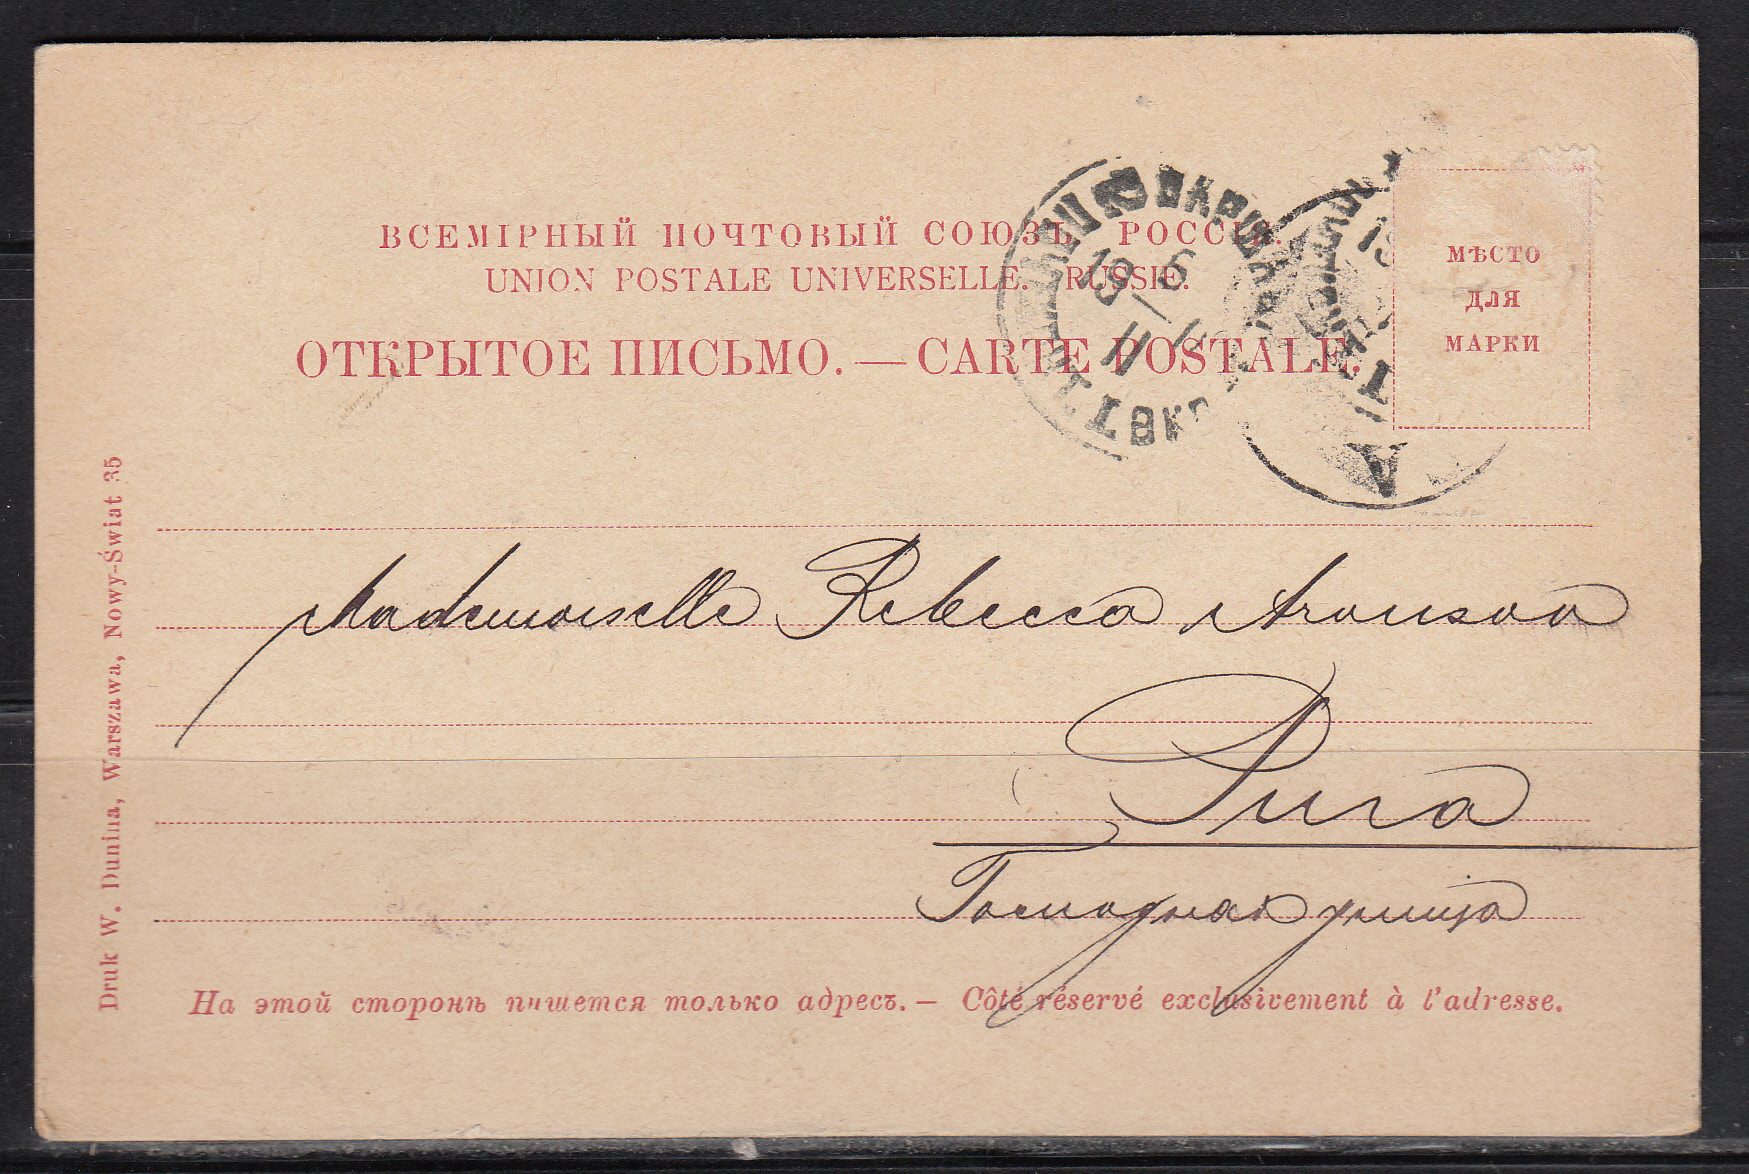 ВСЕМІРНЫЙ ПОЧТОВЫЙ СОЮЗЪ. РОССІЯ.
UNION POSTALE UNIVERSELLE. RUSSIE.
ОТКРЫТОЕ ПИСЬМО. — CARTE POSTALE.
МѢСТО
ДЛЯ
МАРКИ
Mademoiselle Rebecca Aronson
Рига
Господная улица
На этой сторонѣ пишется только адресъ. — Côté réservé exclusivement à l'adresse.
Druk W. Dunina, Warszawa, Nowy-Świat 35